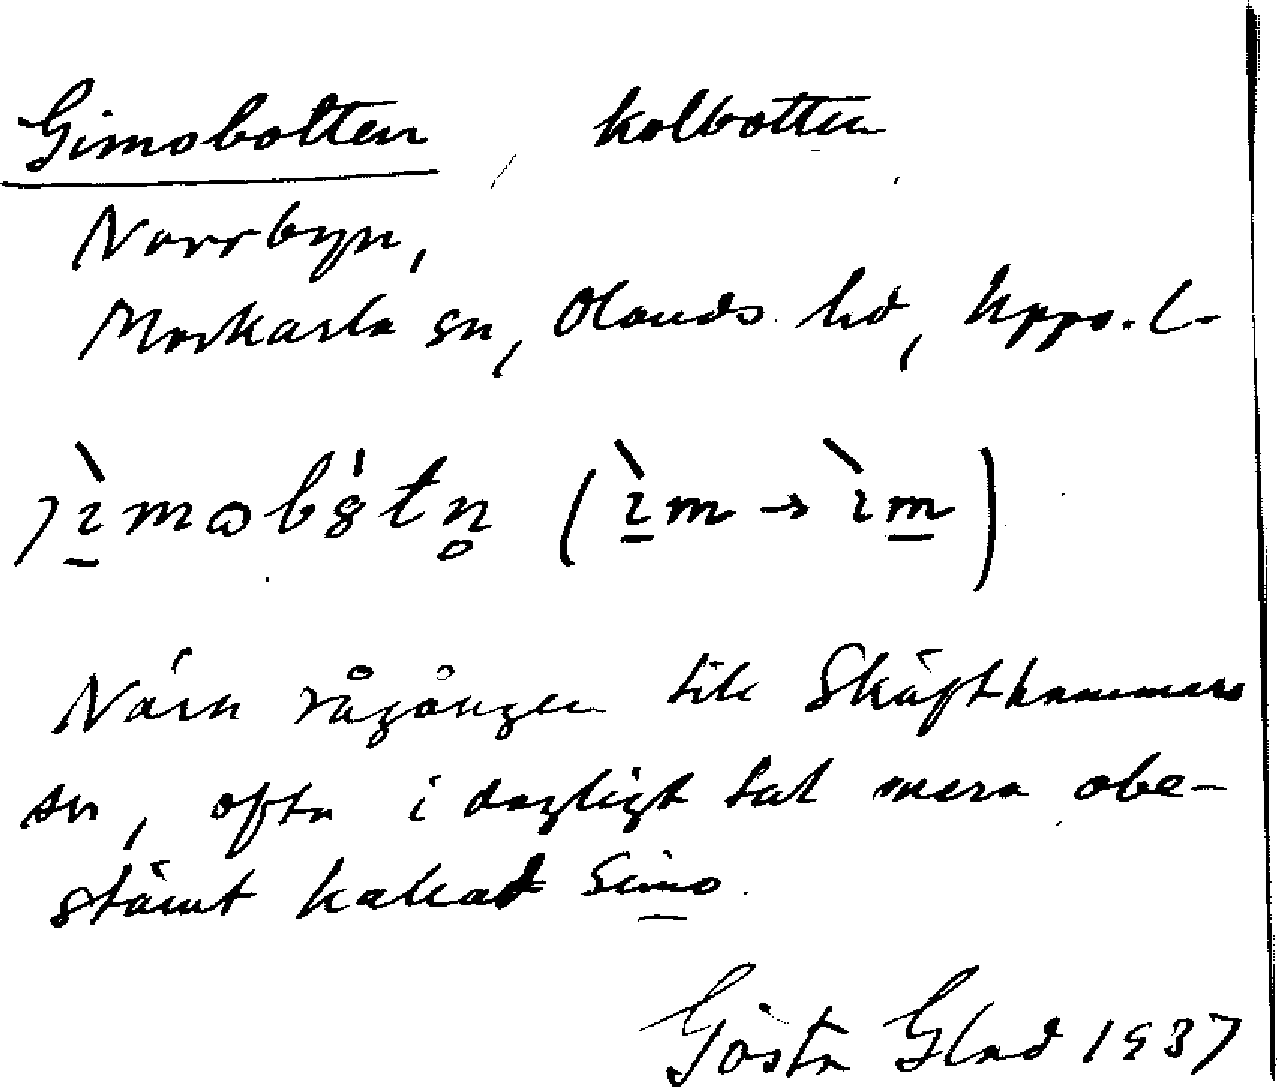 Gimobotten, kolbotten
Norrbyn,
Morkarla sn, Olands hd, Uppl.
Nära rågången till Skäfthammars
sn, ofta i dagligt tal mera obe-
stämt kallad Gimo.
Gösta Glad 1937